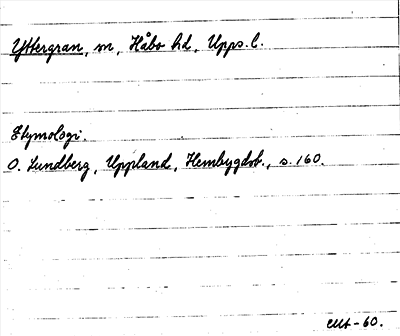 Yttergran, sn, Håbo hd, Upps. l.
Etymologi.
O. Lundberg, Uppland, Hembygdsb., s. 160.
-60.